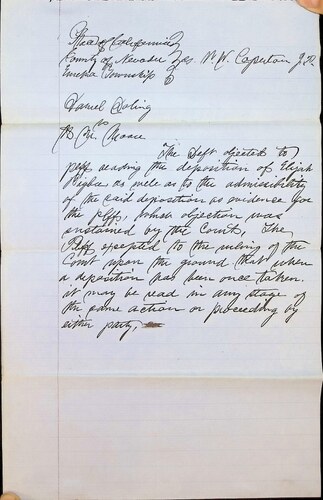 State of California
County of Nevada } ss. W. W. Caperton J. P.
Eureka Township
Daniel
vs
B. Mc Moore
The Deft objected to
Plff reading the deposition of Elijah
as well as to the admissibility
of the said deposition as evidence for
the Plff, which objection was
sustained by the Court, The
Plff excepted to the ruling of the
Court upon the ground that when
a deposition has been once taken
it may be read in any stage of
the same action or proceeding by
either party,